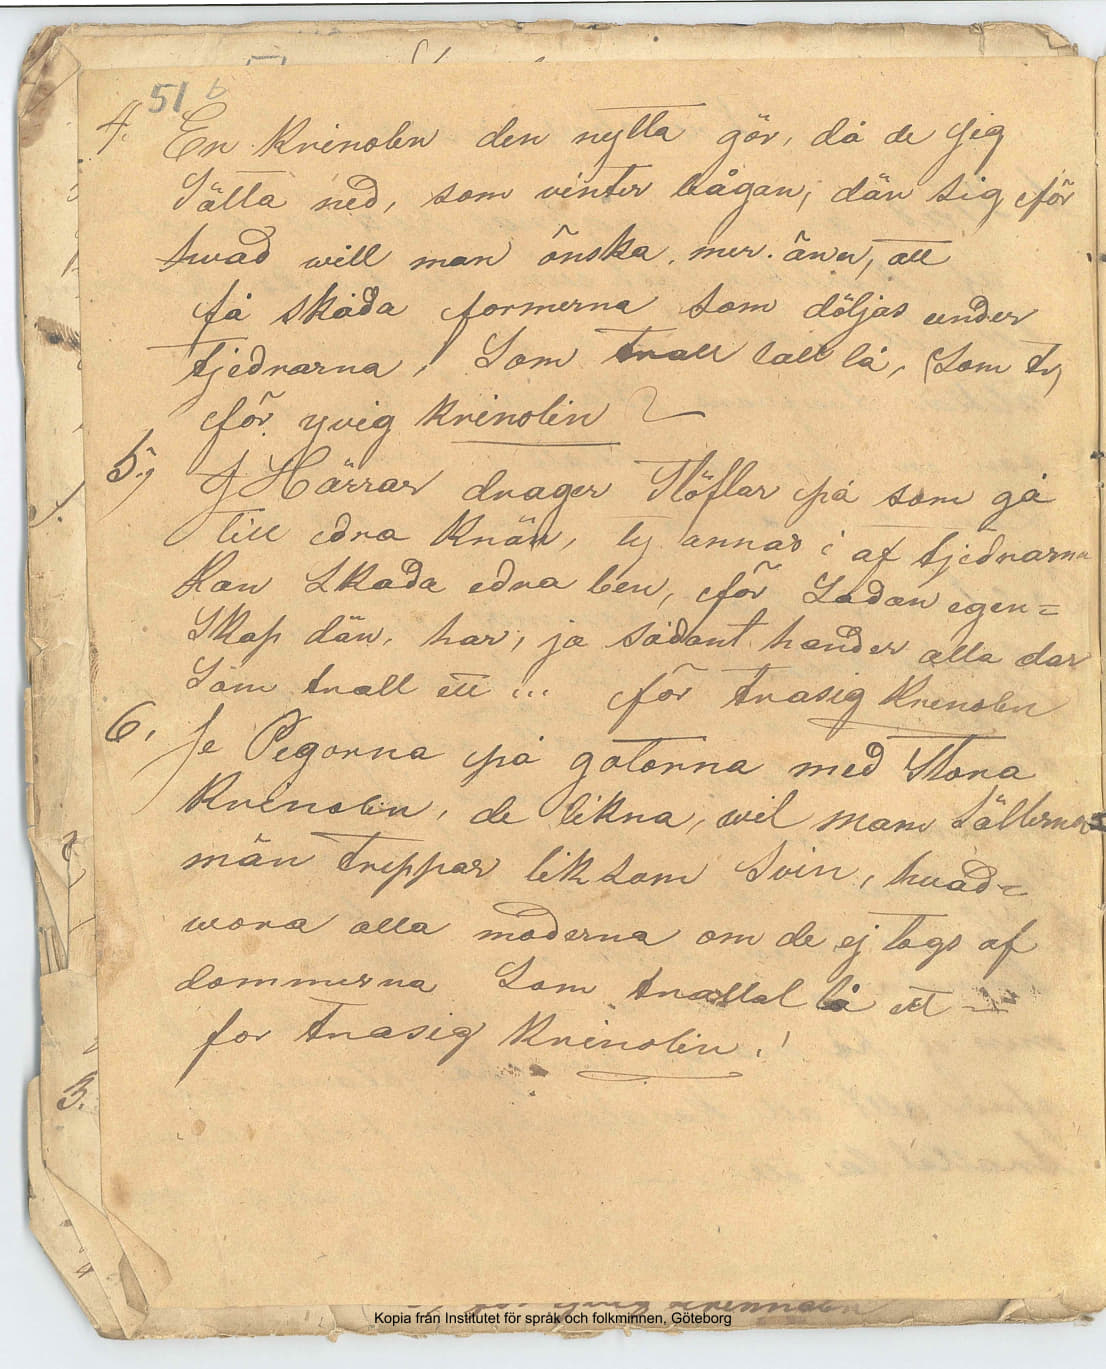 51 b
4. En Krinolin den nytta gör, då de sig
Sätta ned, som vinter bågan, dän sig för
hwad will man önska, mer. än en, att
få skåda formerna som döljas under
tjedrarna, Som trall lall lå, Som tr,
för yvig krinolin
5., I Härrar drager Stöflar på som gå
till edra Knän, ty annars i af tjedrarna
Kan Skada edra ben, för Sådan egen=
Skap dän, har, ja sådant hander alla dar
Som trall ett ... för trasig Krinolin
6. Se Pigorna på gatorna med Stora
Krinolin, de likna, wil mam Sällernes
män trippar lik som Svin, hvad=
wora alla moderna om de ej togs af
dommerna Som trallal lå ett —
for trasig Krinolin.!
3.
för yvig krennolin
Kopia från Institutet för språk och folkminnen, Göteborg